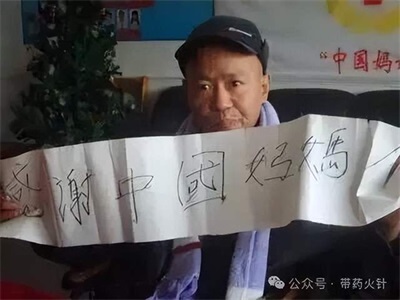 “中国妈
感谢中國妈媽一
公众号 · 带药火针